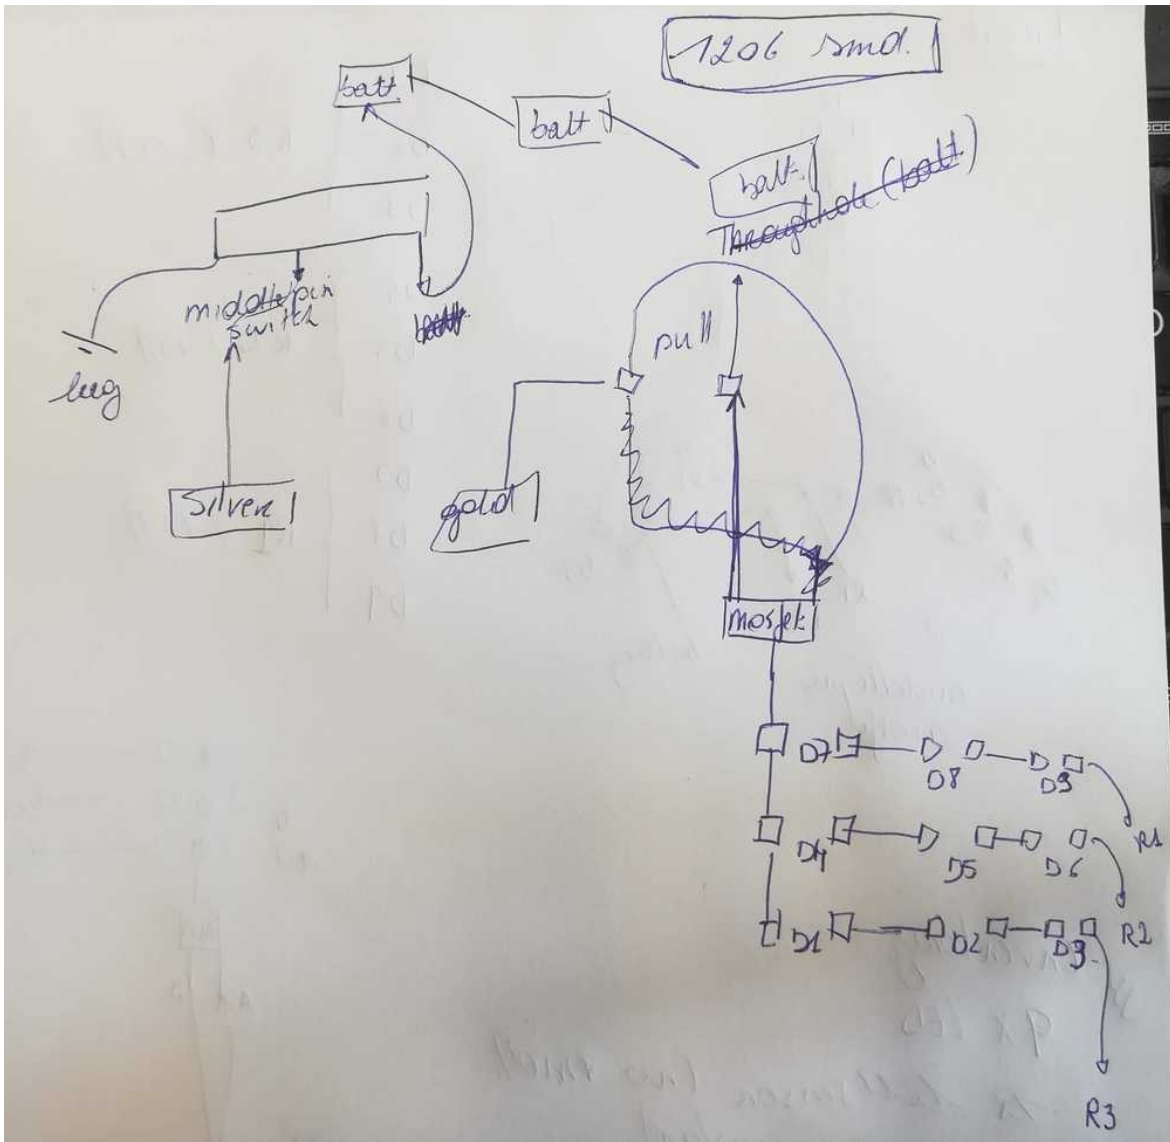 1206 smd.
batt.
batt
batt.
Throughhole (batt)
middle pin
switch
batt.
lug
pull
Silver
gold
mosfet
D7
D8
D9
R1
D4
D5
D6
R2
D1
D2
D3.
R3
9x LED